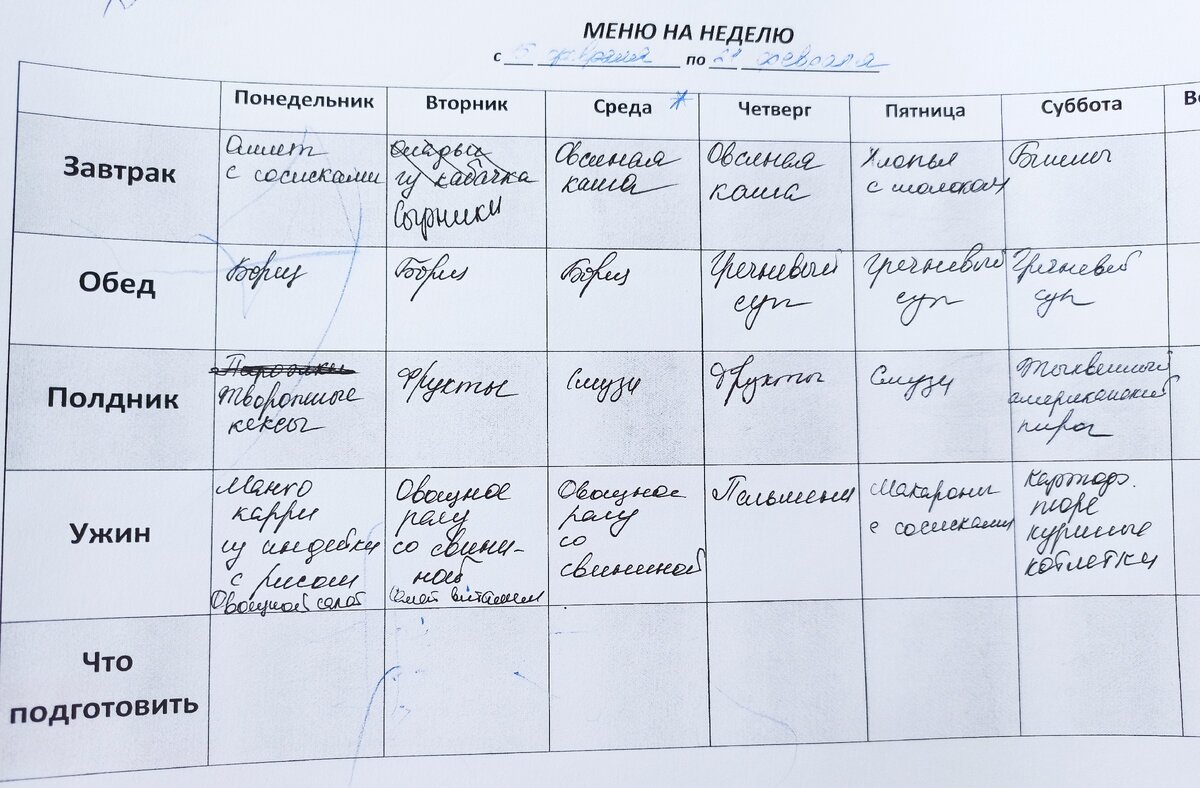 МЕНЮ НА НЕДЕЛЮ
с 15 февраля по 21 февраля
Понедельник Вторник Среда Четверг Пятница Суббота Во
Завтрак
Омлет
с сосисками
оладьи
из кабачка
Сырники
Овсяная
каша
Овсяная
каша
Хлопья
с молоком
Блины
Обед
Борщ
Борщ
Борщ
Гречневый
суп
Гречневый
суп
Гречневый
суп
Полдник
Творожные
кексы
Фрукты
Смузи
Фрукты
Смузи
Тыквенный
американский
пирог
Ужин
Манго
карри
из индейки
с рисом
Овощной салат
Овощное
рагу
со свини-
ной
Салат витамин
Овощное
рагу
со
свининой
Пельмени
Макароны
с сосисками
Картоф.
пюре
куриные
котлетки
Что
подготовить